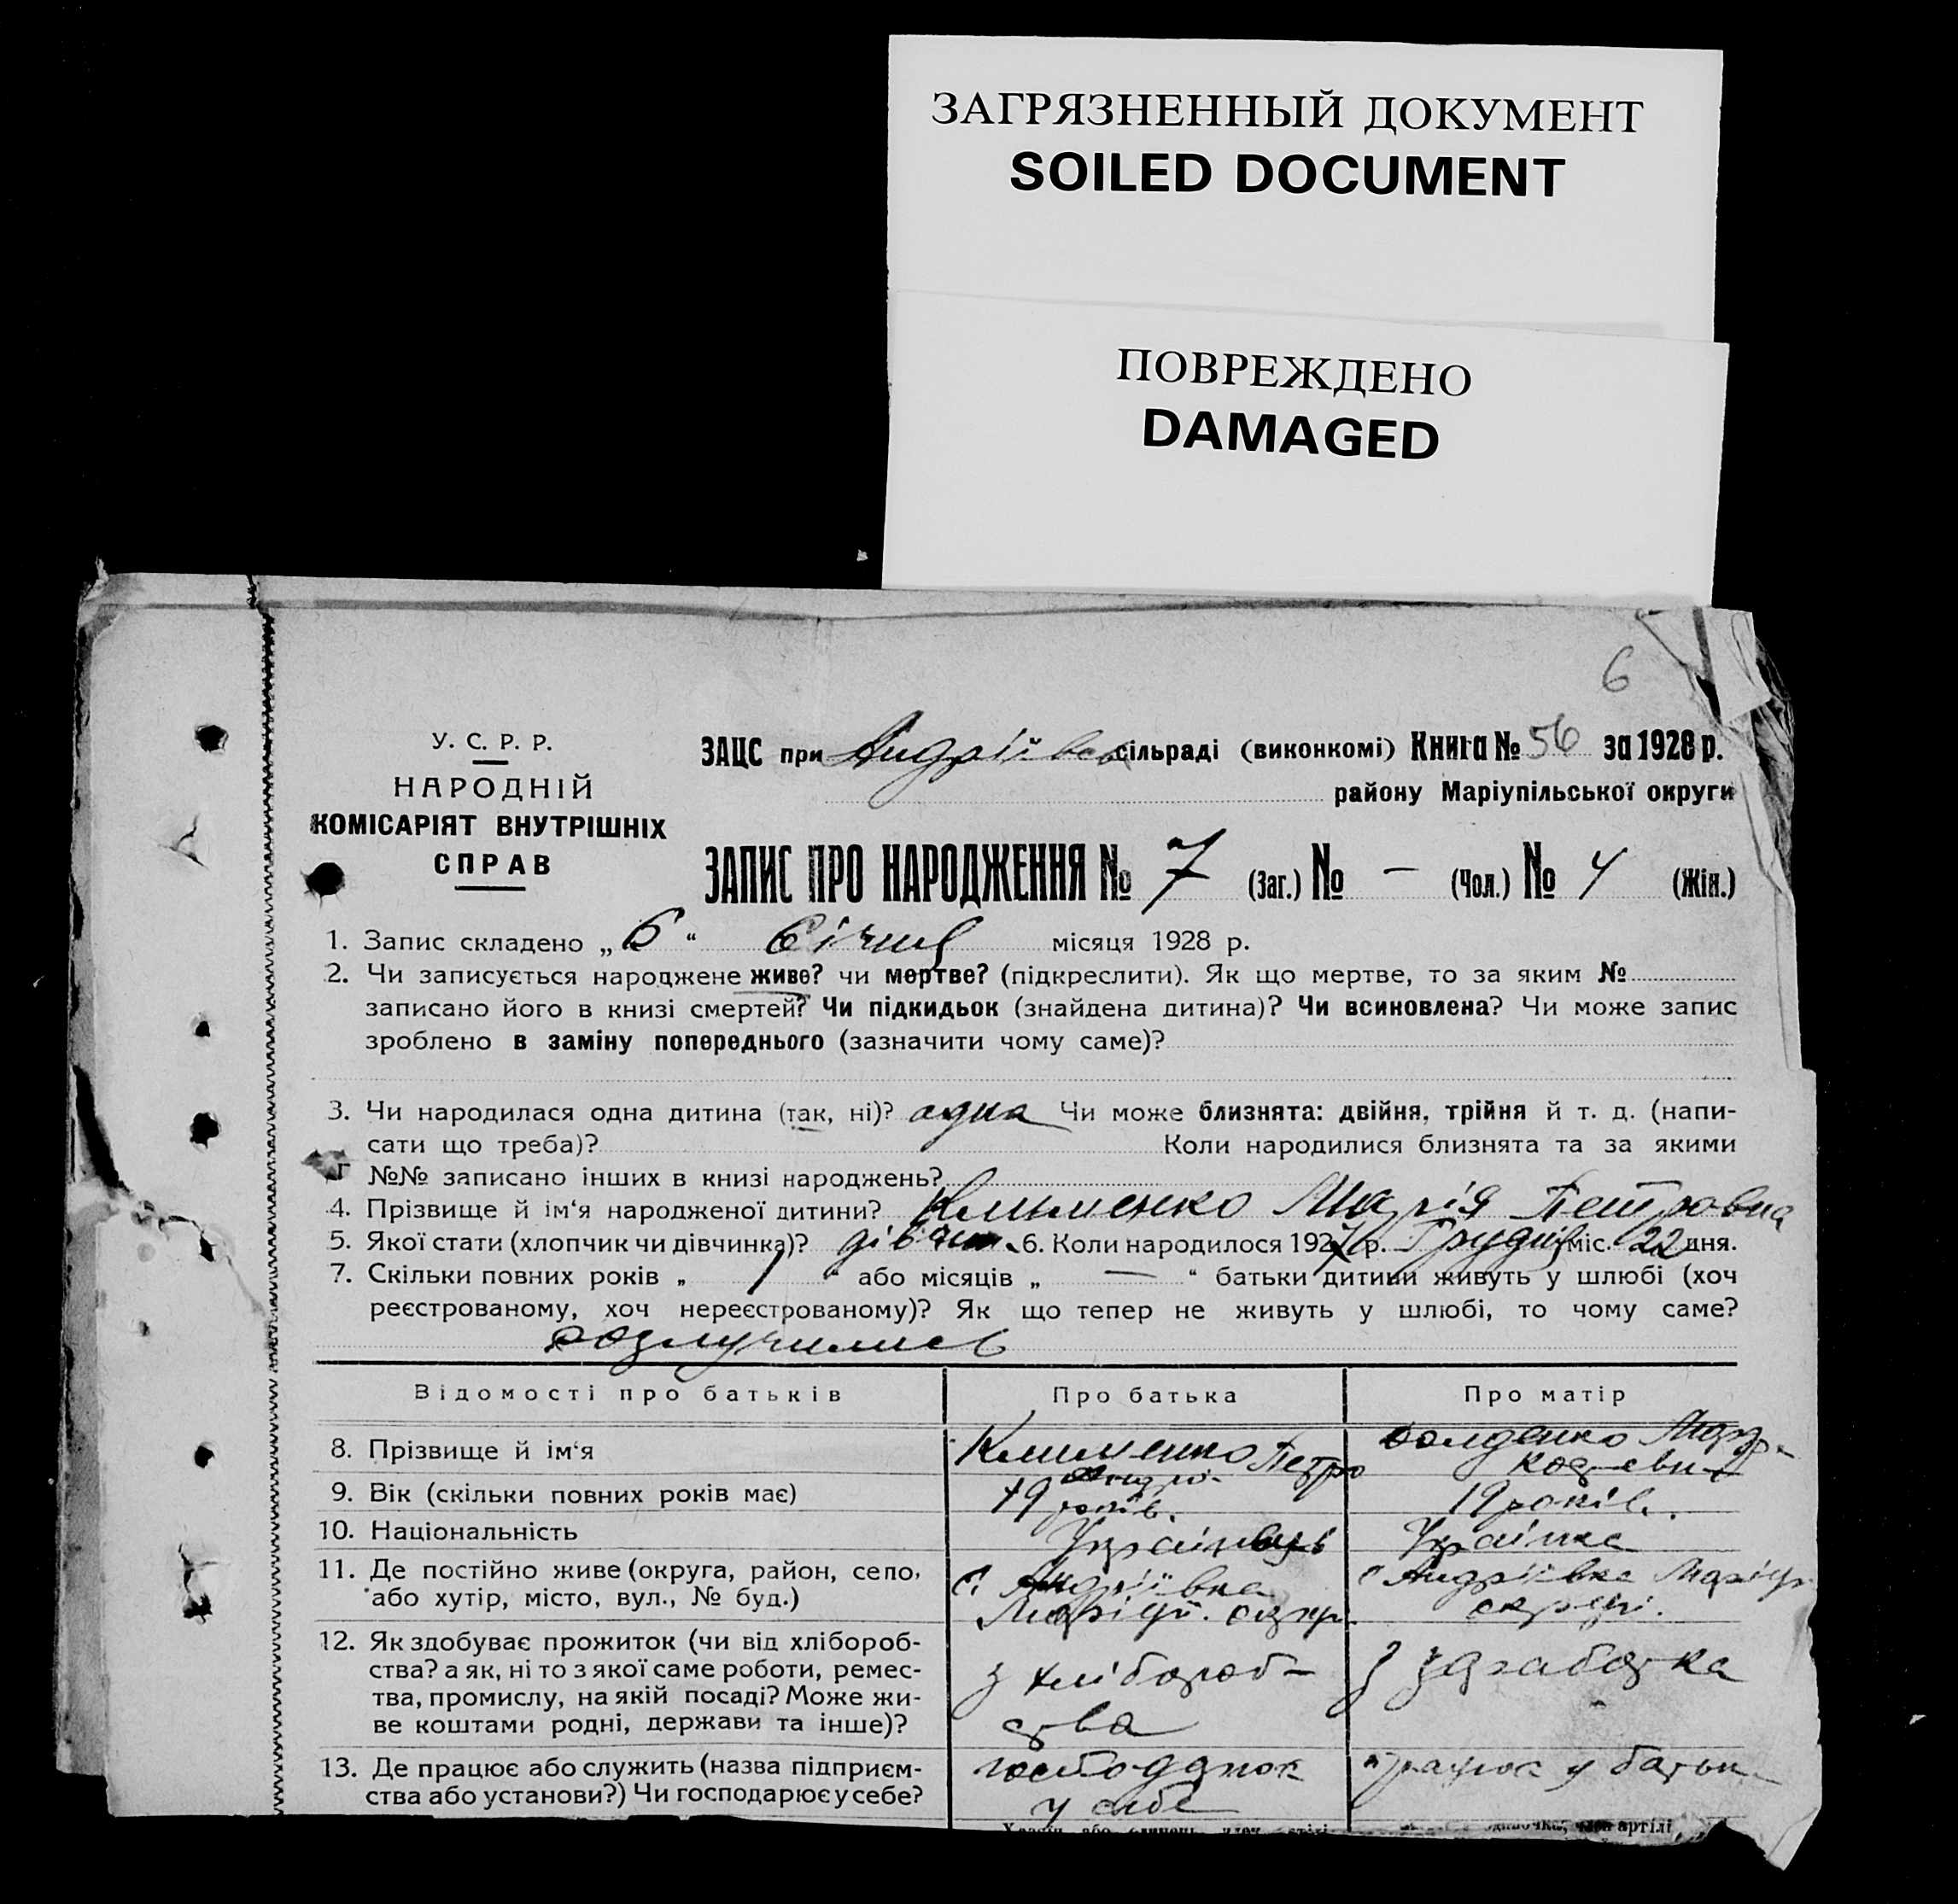 ЗАГРЯЗНЕННЫЙ ДОКУМЕНТ
SOILED DOCUMENT
ПОВРЕЖДЕНО
DAMAGED
6
У. С. Р. Р.
НАРОДНІЙ
КОМІСАРІЯТ ВНУТРІШНІХ
СПРАВ
ЗАЦС при Андріївськ сільраді (виконкомі) Книга № 56 за 1928 р.
району Маріупільської округи
ЗАПИС ПРО НАРОДЖЕННЯ № 7 (Заг.) № — (Чол.) № 4 (Жін.)
1. Запис складено „ 6 “ Січня місяця 1928 р.
2. Чи записується народжене живе? чи мертве? (підкреслити). Як що мертве, то за яким №
записано його в книзі смертей? Чи підкидьок (знайдена дитина)? Чи всиновлена? Чи може запис
зроблено в заміну попереднього (зазначити чому саме)?
3. Чи народилася одна дитина (так, ні)? одна Чи може близнята: двійня, трійня й т. д. (напи-
сати що треба)? Коли народилися близнята та за якими
№№ записано інших в книзі народжень?
4. Прізвище й ім‘я народженої дитини? Клименко Марія Петровна
5. Якої стати (хлопчик чи дівчинка)? дівчин. 6. Коли народилося 1927 р. Грудня міс. 22 дня.
7. Скільки повних років „ 1 “ або місяців „ — “ батьки дитини живуть у шлюбі (хоч
реєстрованому, хоч нереєстрованому)? Як що тепер не живуть у шлюбі, то чому саме?
розлучились
Відомості про батьків Про батька Про матір
8. Прізвище й ім‘я Клименко Петро
9. Вік (скільки повних років має) 19 років. 19 років.
10. Національність Українець Українка
11. Де постійно живе (округа, район, село, с. Андріївка с. Андріївка
або хутір, місто, вул., № буд.) Маріуп. окр.
12. Як здобуває прожиток (чи від хлібороб-
ства? а як, ні то з якої саме роботи, ремес- з хлібороб- з заработка
тва, промислу, на якій посаді? Може жи-
ве коштами родні, держави та інше)? ства
13. Де працює або служить (назва підприєм- у батьк
ства або установи?) Чи господарює у себе? у себе
артілі